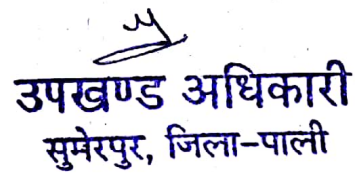 उपखण्ड अधिकारी
सुमेरपुर, जिला-पाली